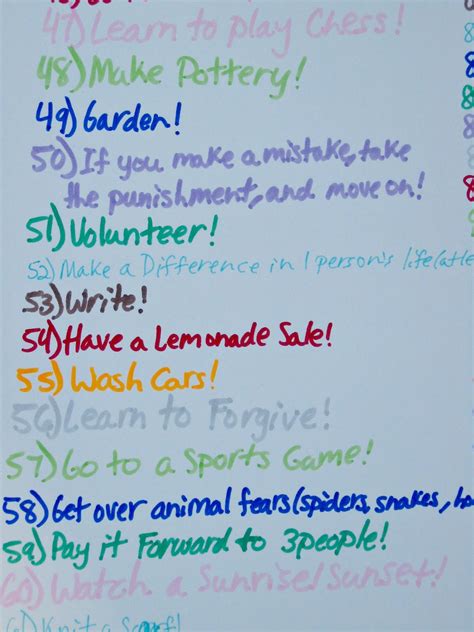 47) Learn to play Chess!
48) Make Pottery!
49) Garden!
50) If you make a mistake, take
the punishment, and move on!
51) Volunteer!
52) Make a Difference in 1 person's life (atle
53) Write!
54) Have a Lemonade Sale!
55) Wash Cars!
56) Learn to Forgive!
57) Go to a Sports Game!
58) Get over animal fears (spiders, snakes,
59) Pay it Forward to 3 people!
60) Watch a Sunrise/Sunset!
61) Knit a Scarf!